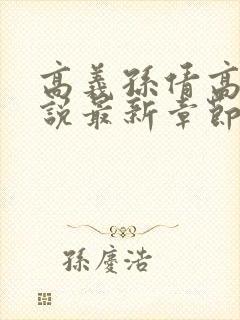 高義孫倩高
説最新章節
孫慶浩